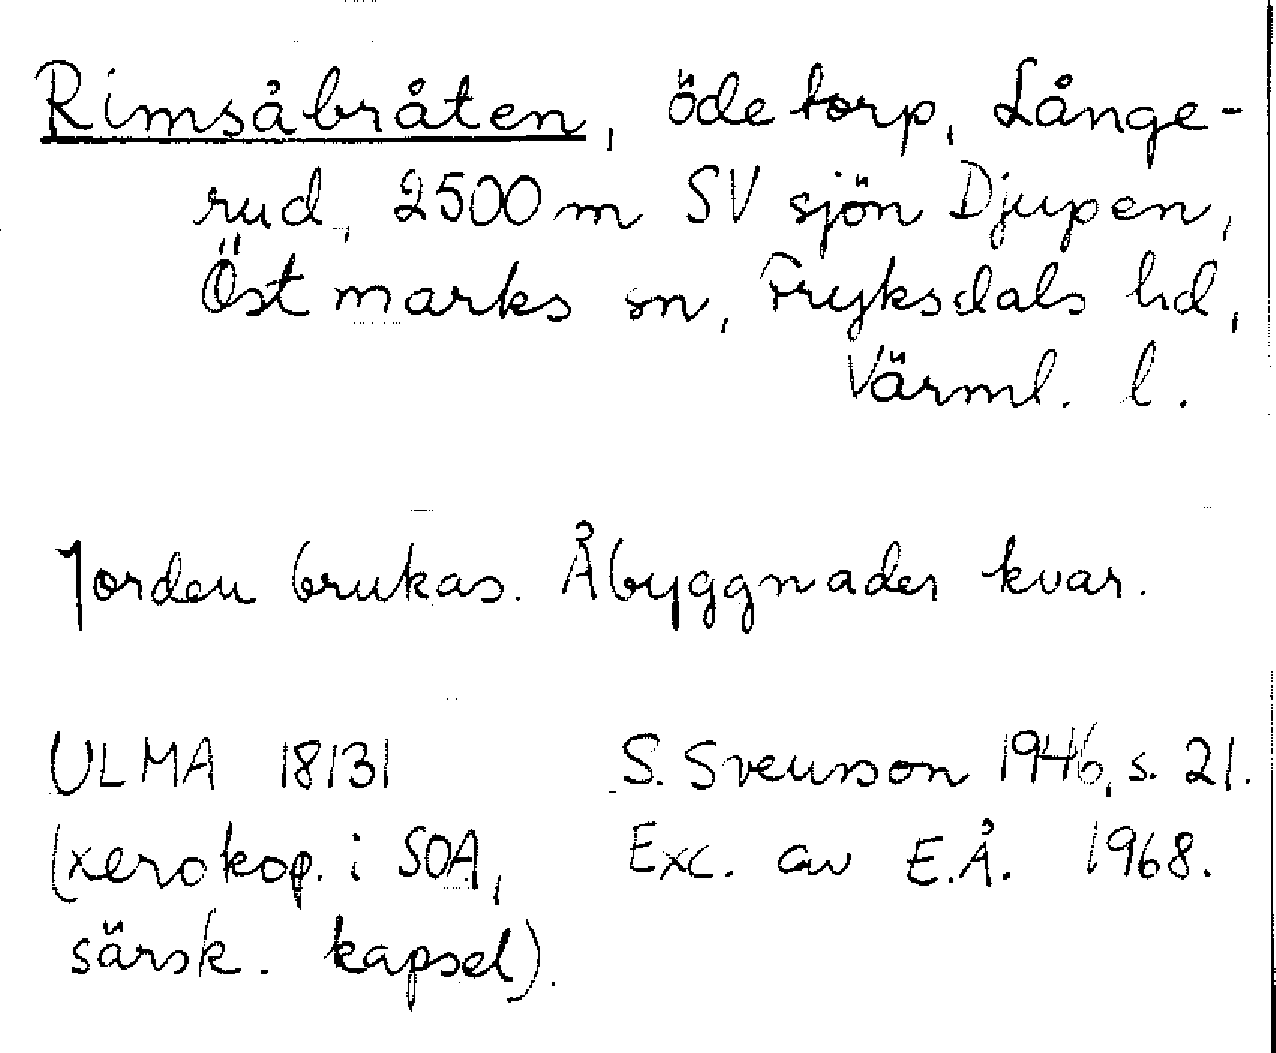 Rimsåbråten, ödetorp, Långe-
rud, 2500 m SV sjön Djupen,
Östmarks sn, Fryksdals hd,
Värml. l.
Jorden brukas. Åbyggnader kvar.
ULMA 18131
(xerokop. i SOA,
särsk. kapsel).
S. Svensson 1946, s. 21.
Exc. av E.Å. 1968.